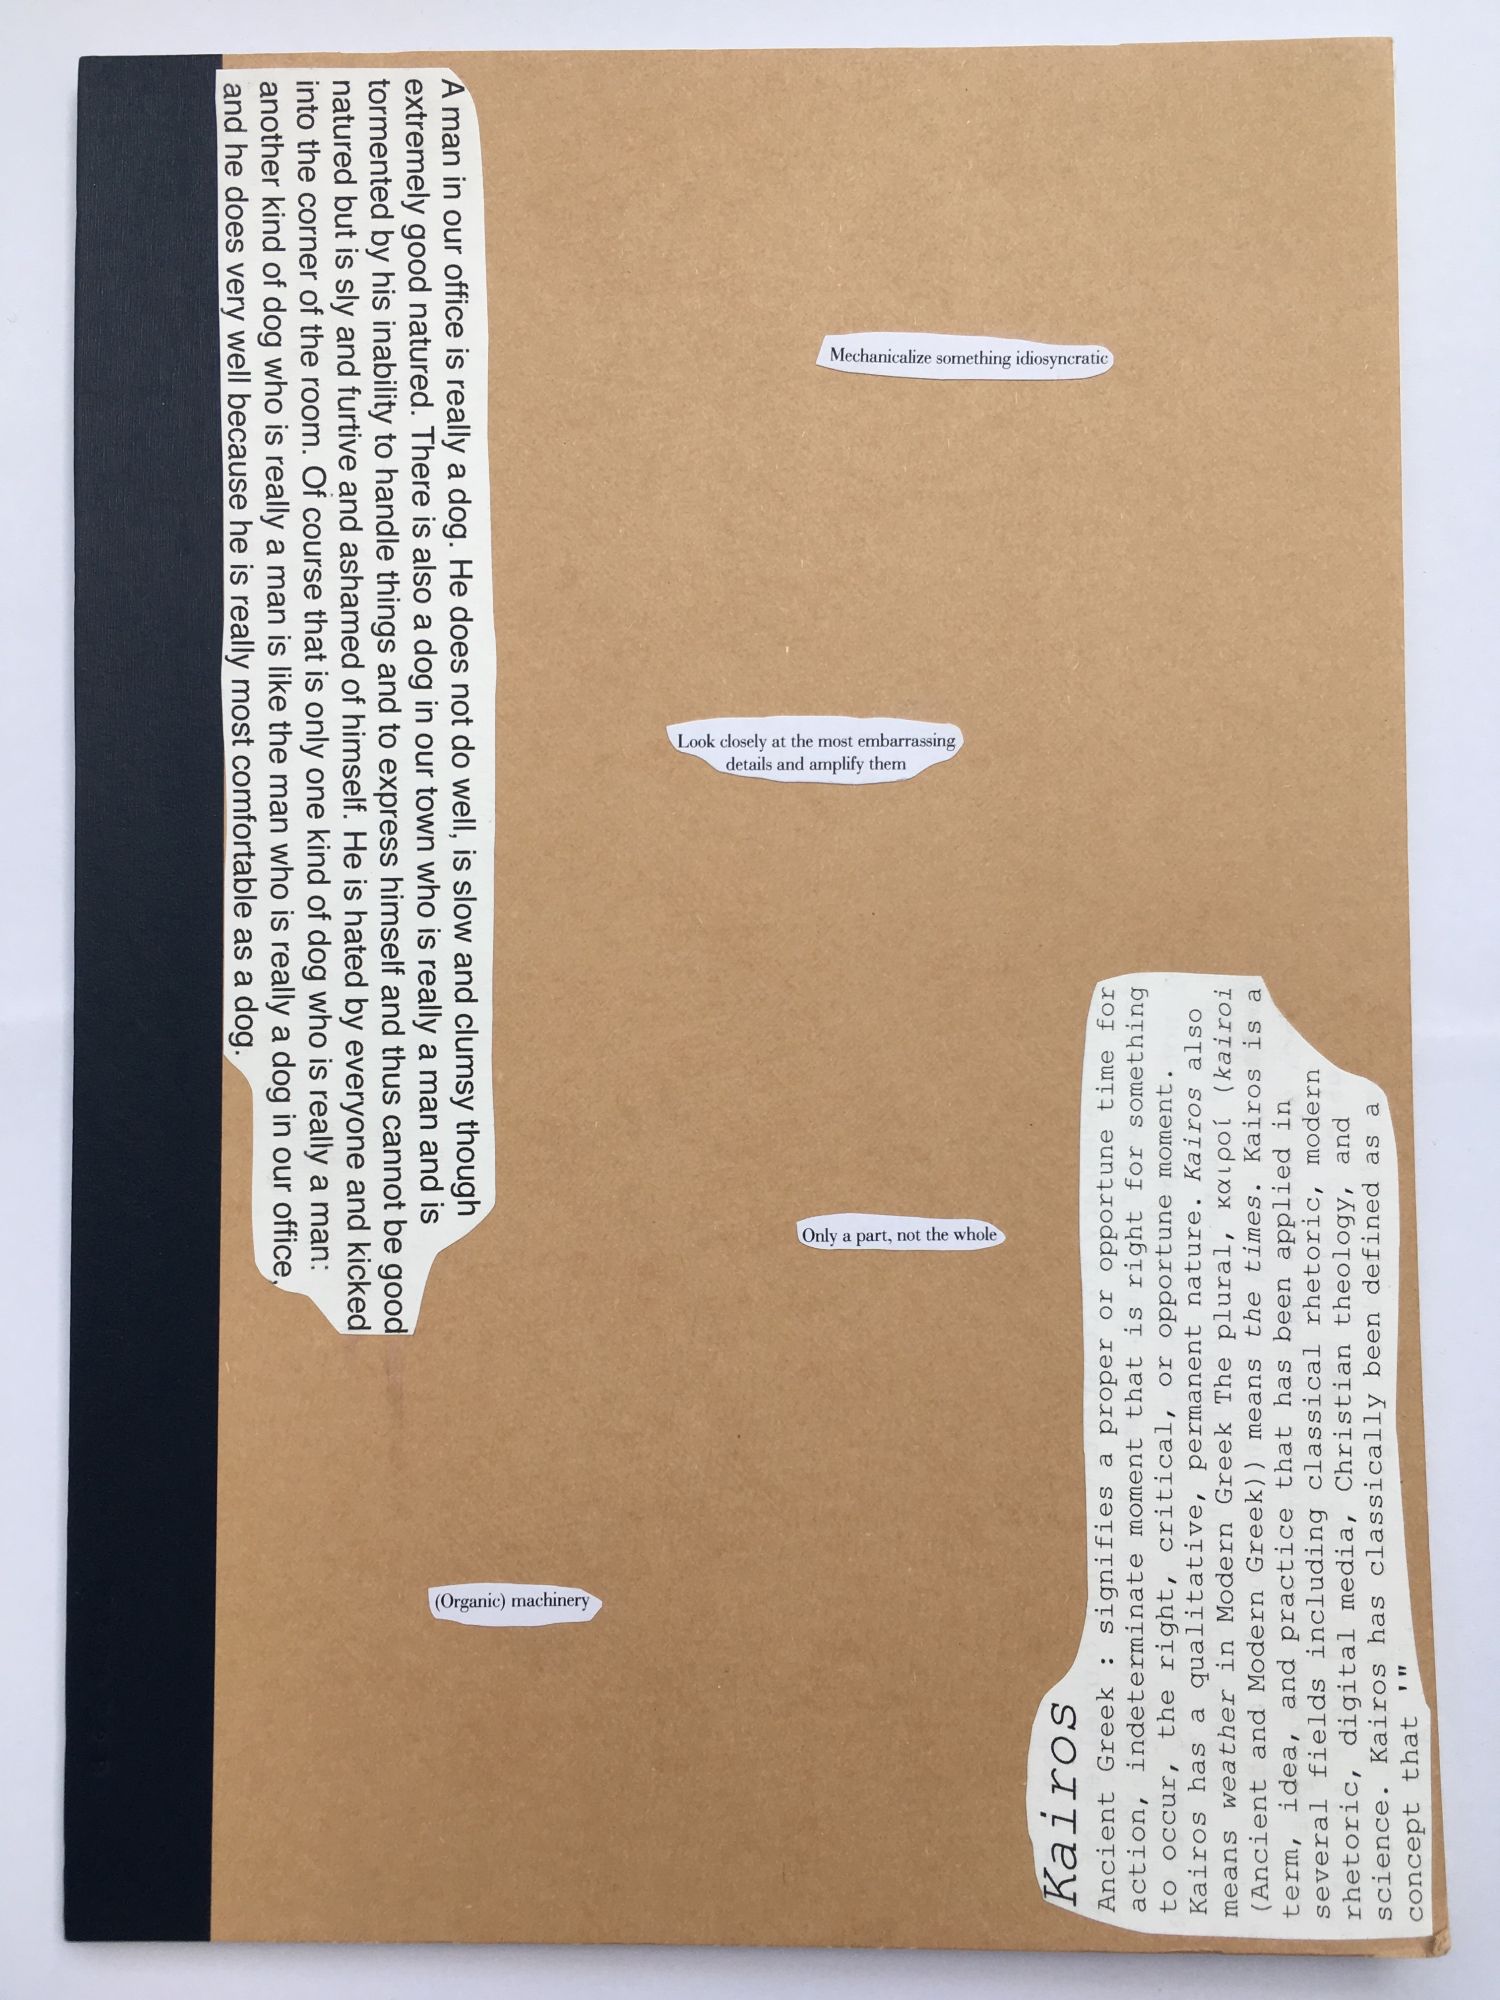 A man in our office is really a dog. He does not do well, is slow and clumsy though
extremely good natured. There is also a dog in our town who is really a man and is
tormented by his inability to handle things and to express himself and thus cannot be good
natured but is sly and furtive and ashamed of himself. He is hated by everyone and kicked
into the corner of the room. Of course that is only one kind of dog who is really a man:
another kind of dog who is really a man is like the man who is really a dog in our office,
and he does very well because he is really most comfortable as a dog.
Mechanicalize something idiosyncratic
Look closely at the most embarrassing
details and amplify them
Only a part, not the whole
(Organic) machinery
Kairos
Ancient Greek : signifies a proper or opportune time for
action, indeterminate moment that is right for something
to occur, the right, critical, or opportune moment.
Kairos has a qualitative, permanent nature. Kairos also
means weather in Modern Greek The plural, καιροί (kairoi
(Ancient and Modern Greek)) means the times. Kairos is a
term, idea, and practice that has been applied in
several fields including classical rhetoric, modern
rhetoric, digital media, Christian theology, and
science. Kairos has classically been defined as a
concept that '"